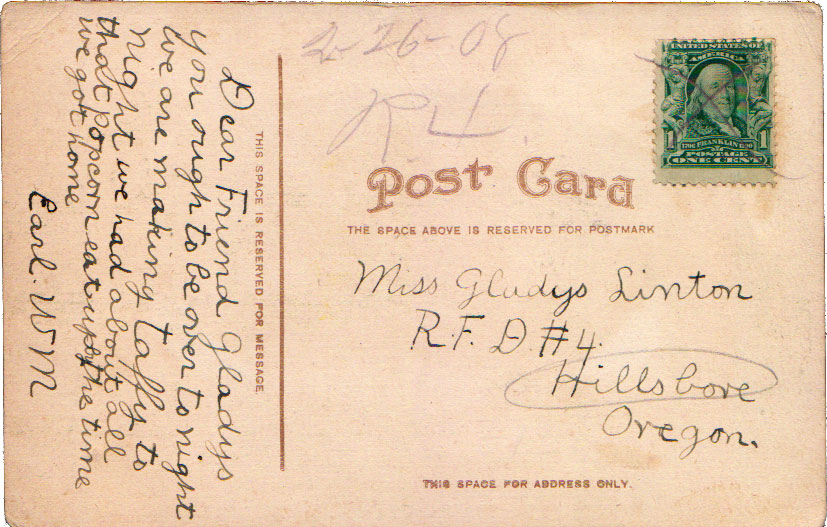 Dear Friend Gladys
you ought to be over to night
we are making taffy to
night we had about all
that popcorn eat up by the time
we got home
Earl. W M
THIS SPACE IS RESERVED FOR MESSAGE
2-26-08
R.4.
UNITED STATES OF
AMERICA
1706 FRANKLIN 1790
1 1
POSTAGE
ONE CENT
Post Card
THE SPACE ABOVE IS RESERVED FOR POSTMARK
Miss Gladys Linton
R.F.D #4.
Hillsboro
Oregon.
THIS SPACE FOR ADDRESS ONLY.